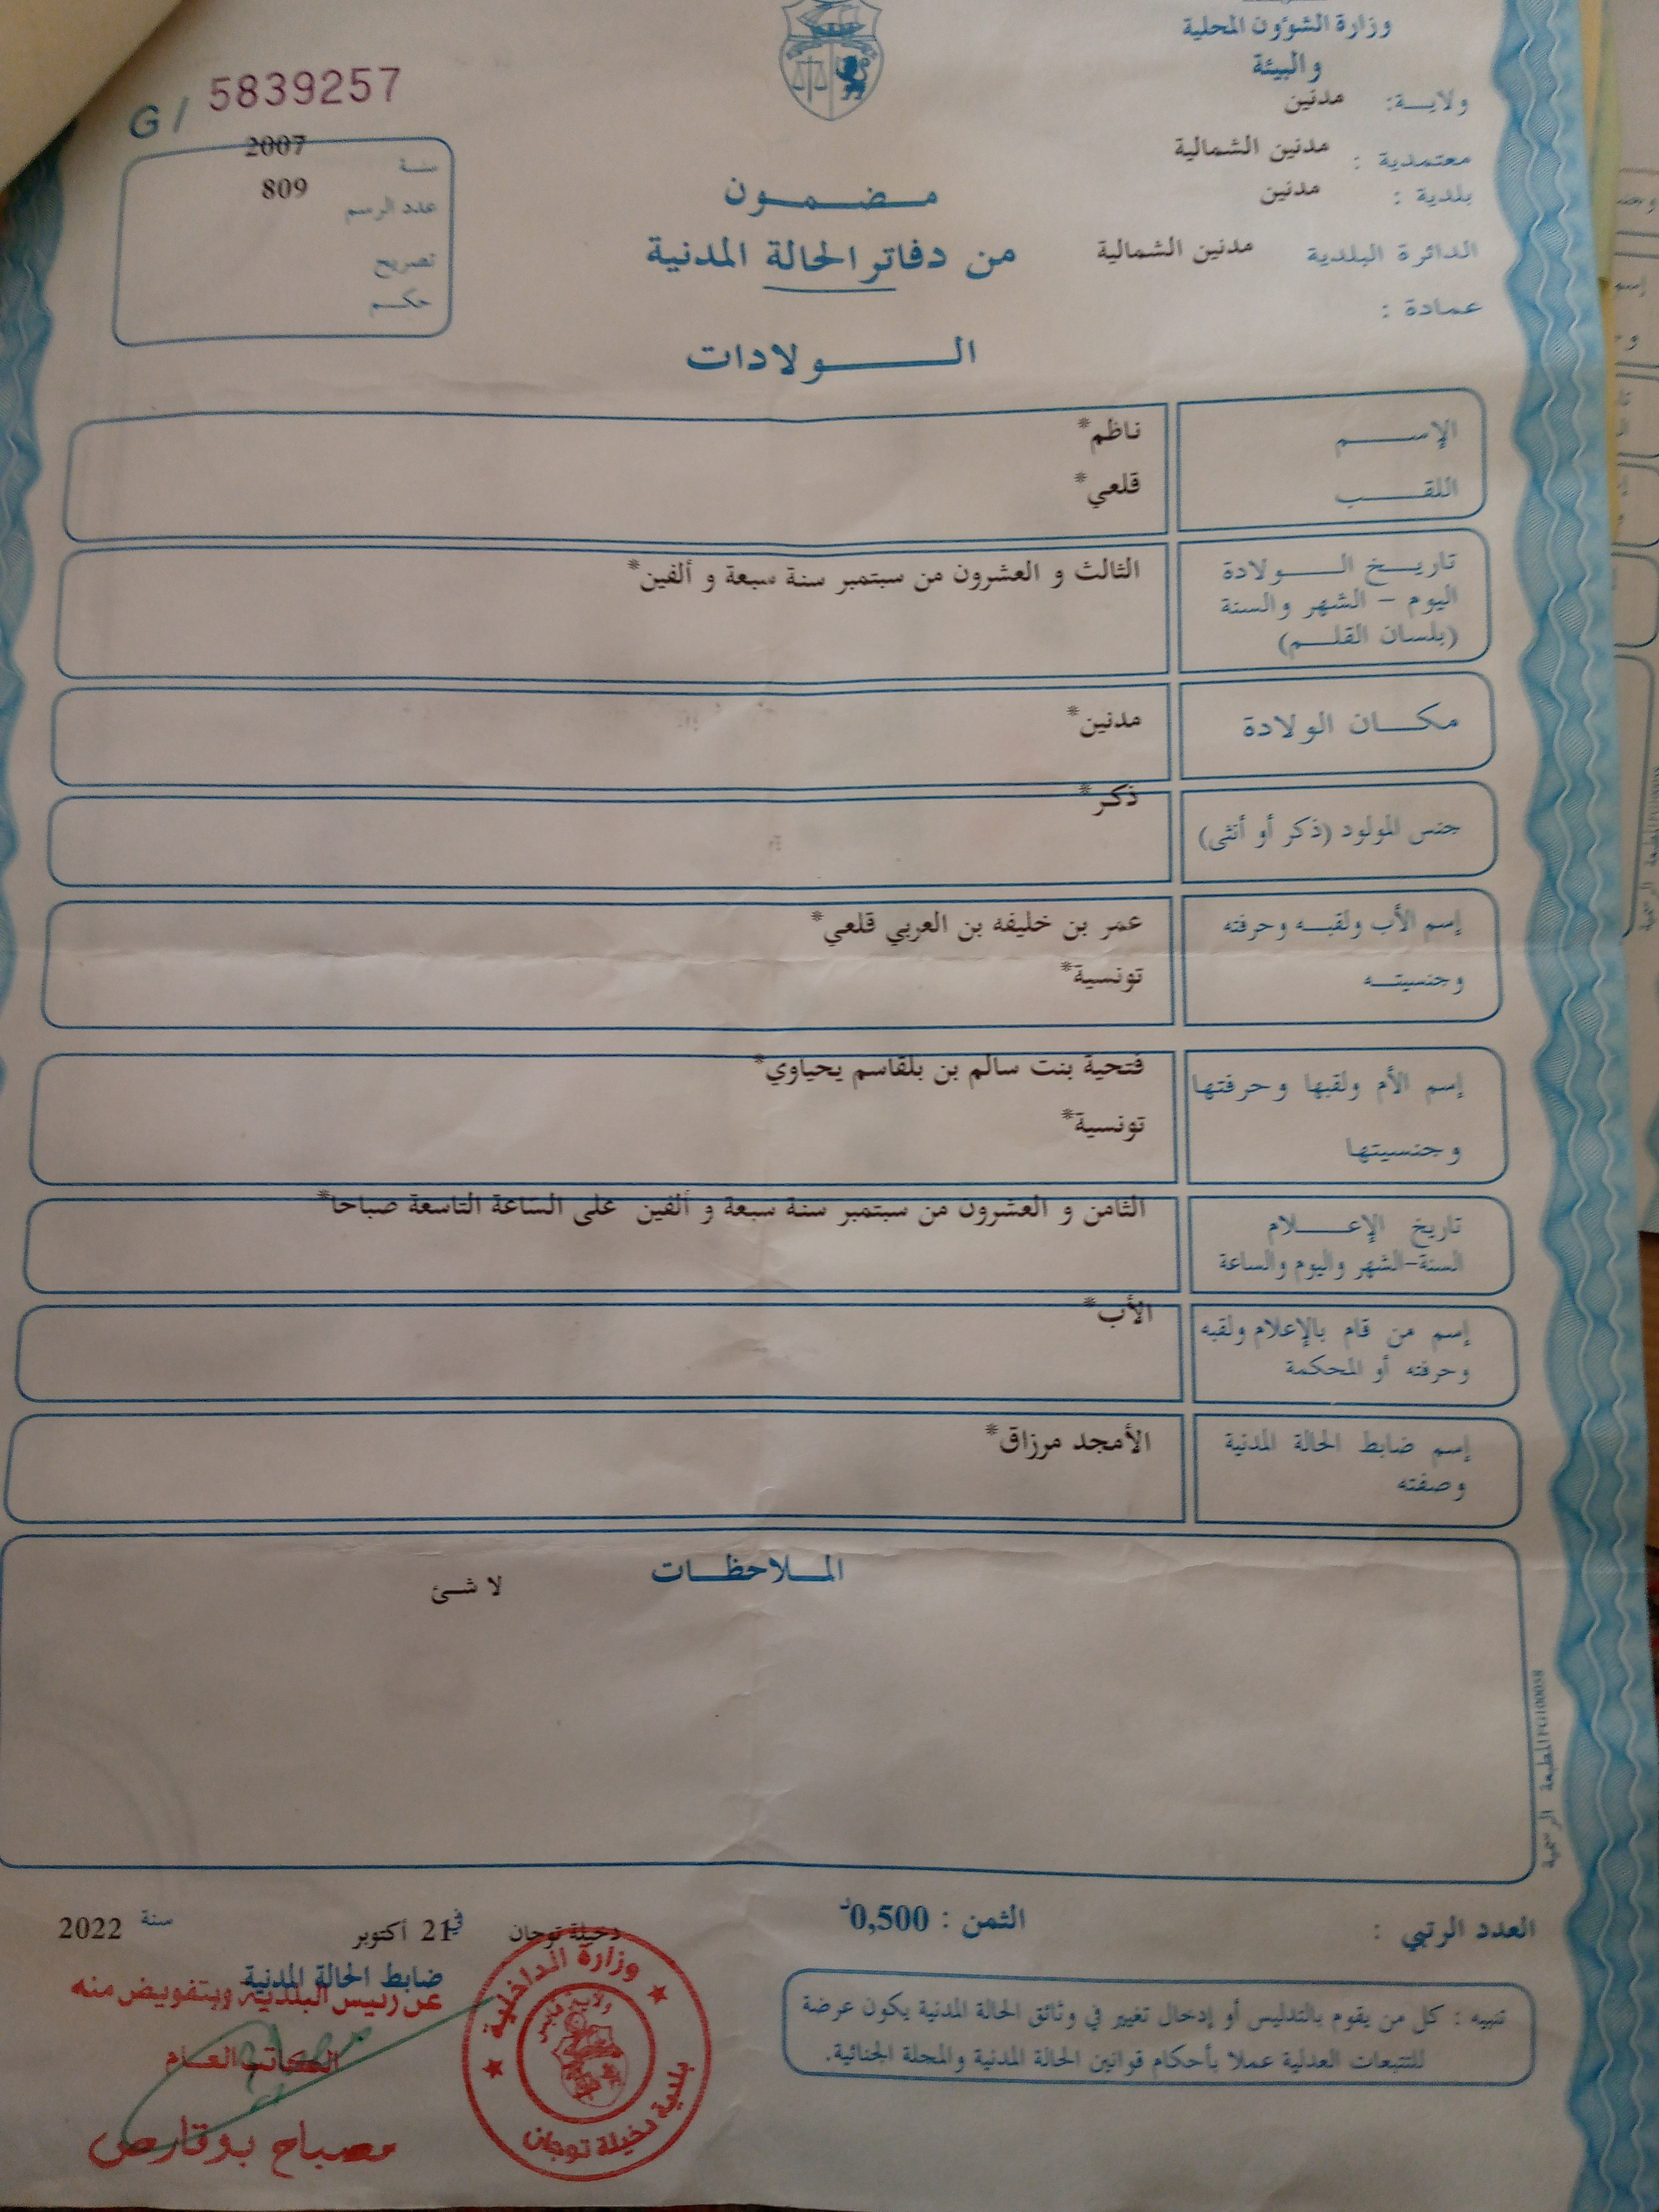 وزارة الشؤون المحلية
والبيئة
ولايـــة: مدنين
معتمدية : مدنين الشمالية
بلدية : مدنين
الدائرة البلدية مدنين الشمالية
عمادة :
G/ 5839257
سنـة 2007
عدد الرسم 809
تصريح
حكـم
مـضـمـون
من دفاتر الحالة المدنية
الـــولادات
الإســـم ناظم*
اللقـــب قلعي*
تاريـخ الـــولادة الثالث و العشرون من سبتمبر سنة سبعة و ألفين*
اليوم - الشهر والسنة
(بلسان القلـم)
مكـــان الولادة مدنين*
جنس المولود (ذكر أو أنثى) ذكر*
إسم الأب ولقبـه وحرفته عمر بن خليفه بن العربي قلعي*
وجنسيتـه تونسية*
إسم الأم ولقبها وحرفتها فتحية بنت سالم بن بلقاسم يحياوي*
وجنسيتها تونسية*
تاريخ الإعـــلام الثامن و العشرون من سبتمبر سنة سبعة و ألفين على الساعة التاسعة صباحا*
السنة-الشهر واليوم والساعة
إسم من قام بالإعلام ولقبه الأب*
وحرفته أو المحكمة
إسم ضابط الحالة المدنية الأمجد مرزاق*
وصفته
المـلاحظـات
لا شئ
المطبعة الرسمية
العدد الرتبي :
الثمن : 0,500د
دخيلة توجان في 21 أكتوبر سنة 2022
ضابط الحالة المدنية
عن رئيس البلدية وبتفويض منه
الكاتب العـام
مصباح بوقارص
وزارة الداخلية
ولاية قابس
بلدية دخيلة توجان
تنبيه : كل من يقوم بالتدليس أو إدخال تغيير في وثائق الحالة المدنية يكون عرضة
للتتبعات العدلية عملا بأحكام قوانين الحالة المدنية والمجلة الجنائية.